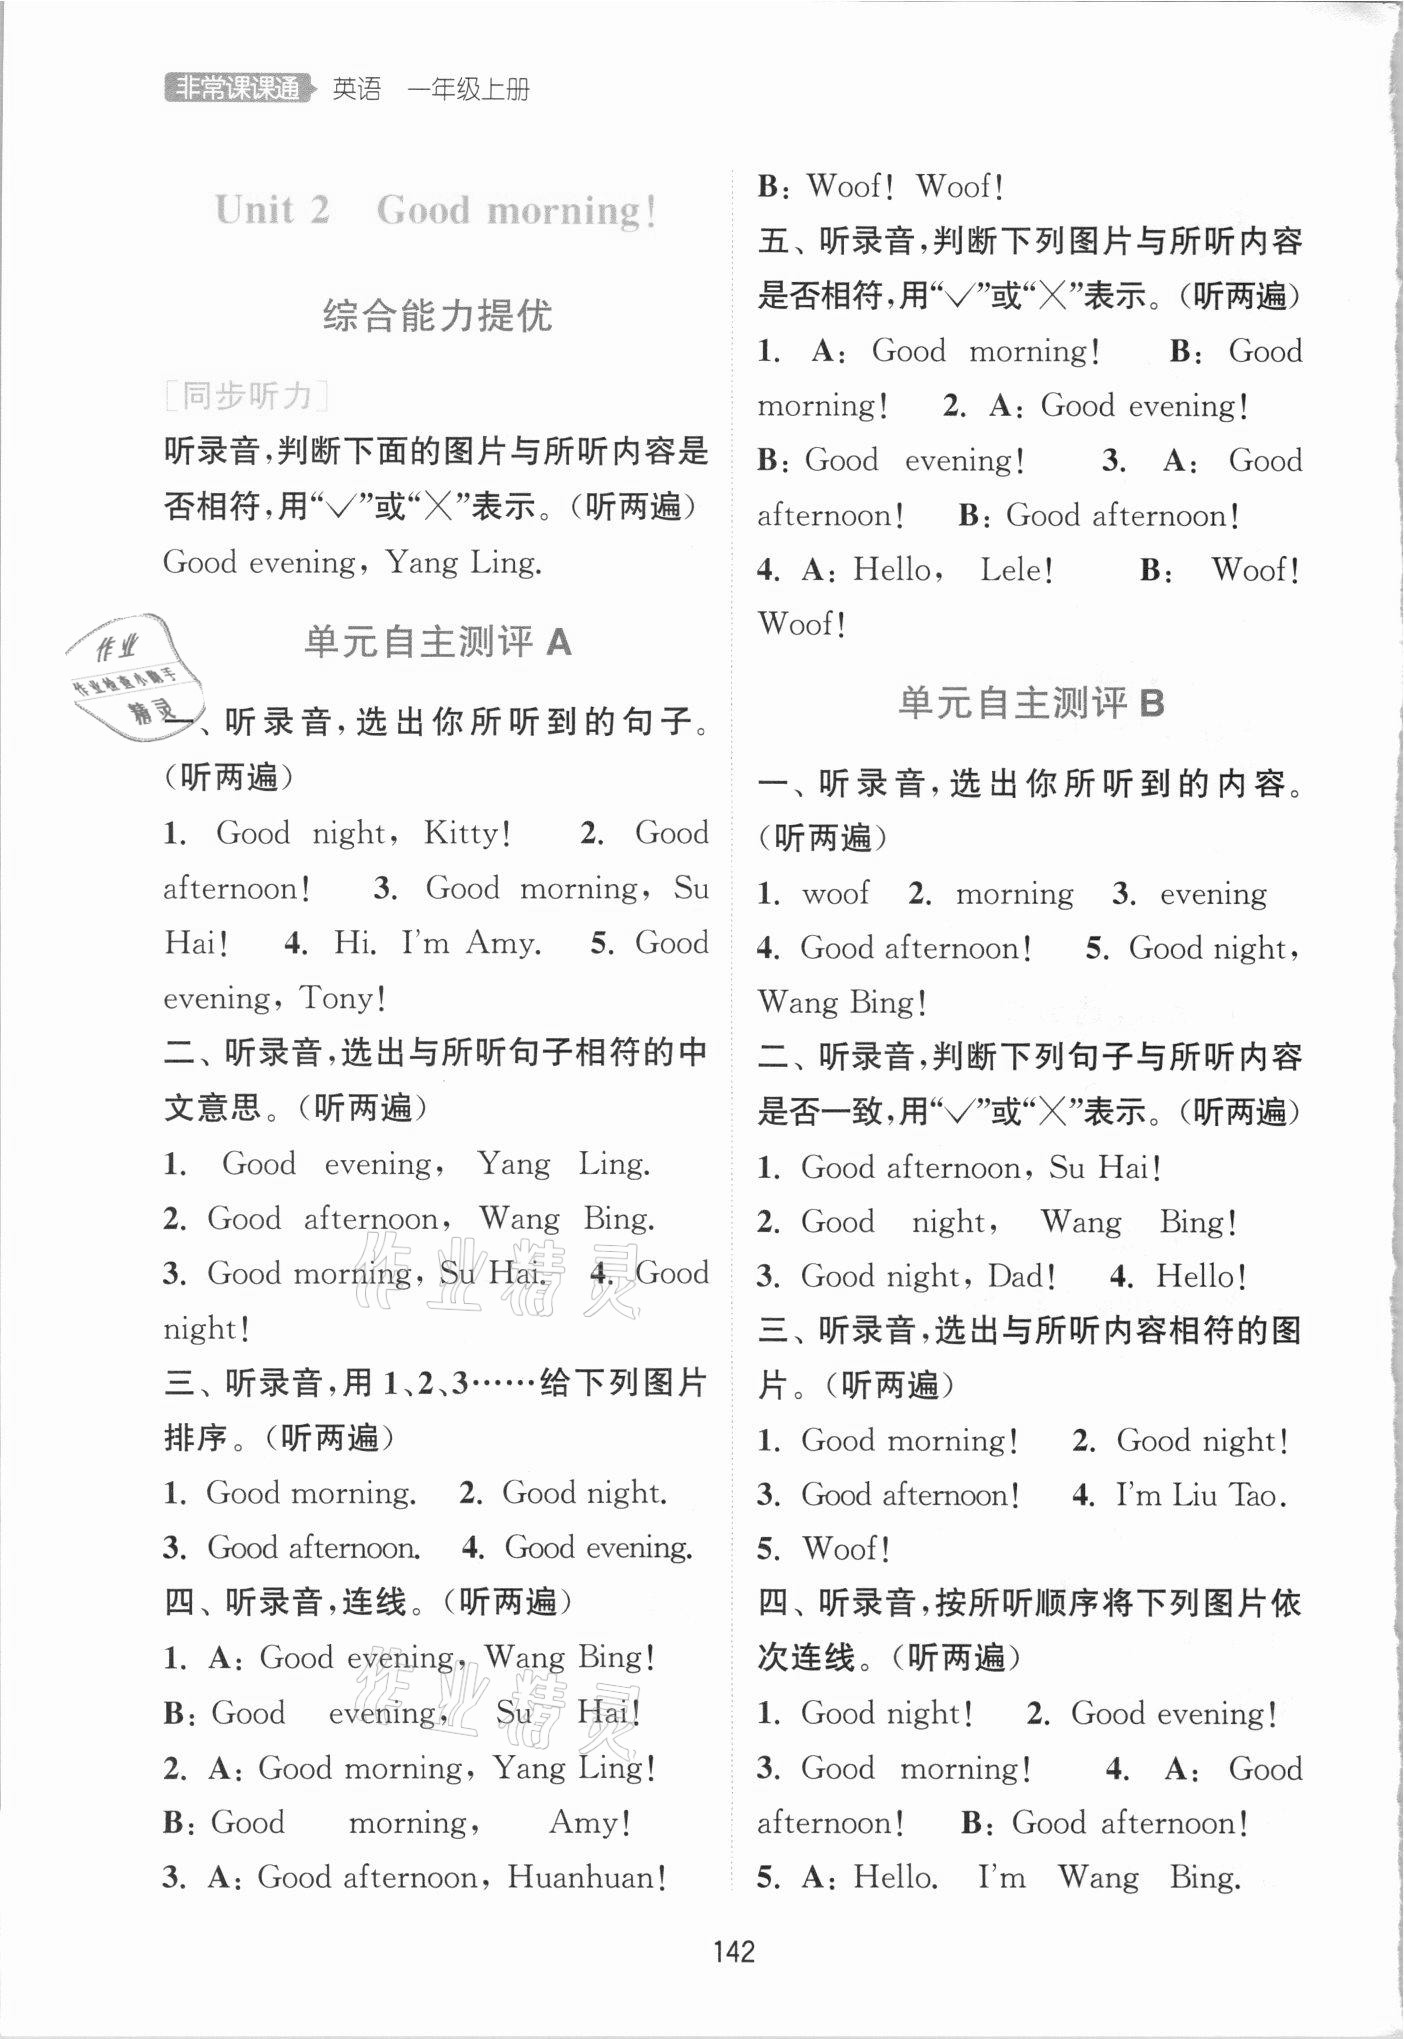 非常课课通 英语 一年级上册
Unit 2 Good morning!
综合能力提优
[同步听力]
听录音,判断下面的图片与所听内容是
否相符,用“✓”或“✕”表示。(听两遍)
Good evening, Yang Ling.
单元自主测评 A
一、听录音,选出你所听到的句子。
(听两遍)
1. Good night, Kitty! 2. Good
afternoon! 3. Good morning, Su
Hai! 4. Hi. I'm Amy. 5. Good
evening, Tony!
二、听录音,选出与所听句子相符的中
文意思。(听两遍)
1. Good evening, Yang Ling.
2. Good afternoon, Wang Bing.
3. Good morning, Su Hai. 4. Good
night!
三、听录音,用 1、2、3……给下列图片
排序。(听两遍)
1. Good morning. 2. Good night.
3. Good afternoon. 4. Good evening.
四、听录音,连线。(听两遍)
1. A: Good evening, Wang Bing!
B: Good evening, Su Hai!
2. A: Good morning, Yang Ling!
B: Good morning, Amy!
3. A: Good afternoon, Huanhuan!
B: Woof! Woof!
五、听录音,判断下列图片与所听内容
是否相符,用“✓”或“✕”表示。(听两遍)
1. A: Good morning! B: Good
morning! 2. A: Good evening!
B: Good evening! 3. A: Good
afternoon! B: Good afternoon!
4. A: Hello, Lele! B: Woof!
Woof!
单元自主测评 B
一、听录音,选出你所听到的内容。
(听两遍)
1. woof 2. morning 3. evening
4. Good afternoon! 5. Good night,
Wang Bing!
二、听录音,判断下列句子与所听内容
是否一致,用“✓”或“✕”表示。(听两遍)
1. Good afternoon, Su Hai!
2. Good night, Wang Bing!
3. Good night, Dad! 4. Hello!
三、听录音,选出与所听内容相符的图
片。(听两遍)
1. Good morning! 2. Good night!
3. Good afternoon! 4. I'm Liu Tao.
5. Woof!
四、听录音,按所听顺序将下列图片依
次连线。(听两遍)
1. Good night! 2. Good evening!
3. Good morning! 4. A: Good
afternoon! B: Good afternoon!
5. A: Hello. I'm Wang Bing.
142
作业
作业检查小助手
精灵
作业精灵
作业精灵